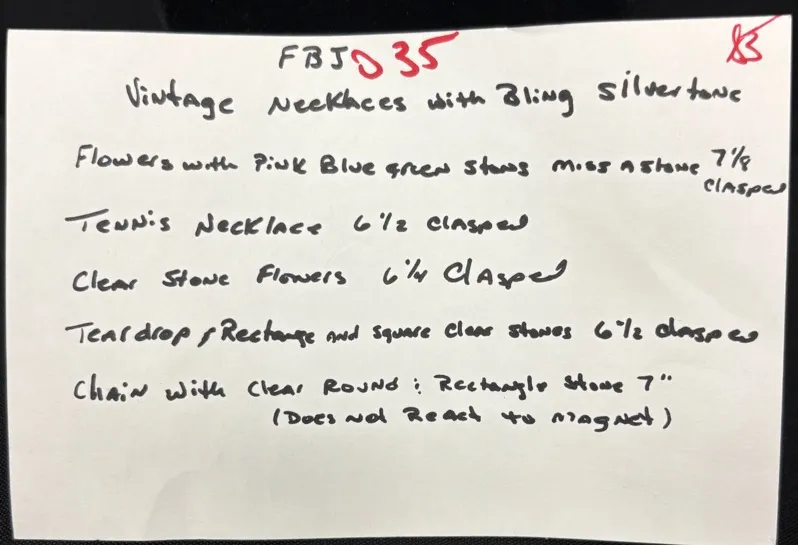 FBJ D35
$3
Vintage Necklaces with Bling Silvertone
Flowers with Pink Blue green stones miss a stone 7 1/8
Clasped
Tennis Necklace 6 1/2 Clasped
Clear Stone Flowers 6 1/4 Clasped
Teardrop, Rectange and square clear stones 6 1/2 clasped
Chain with Clear Round & Rectangle Stone 7"
(Does not React to magnet)